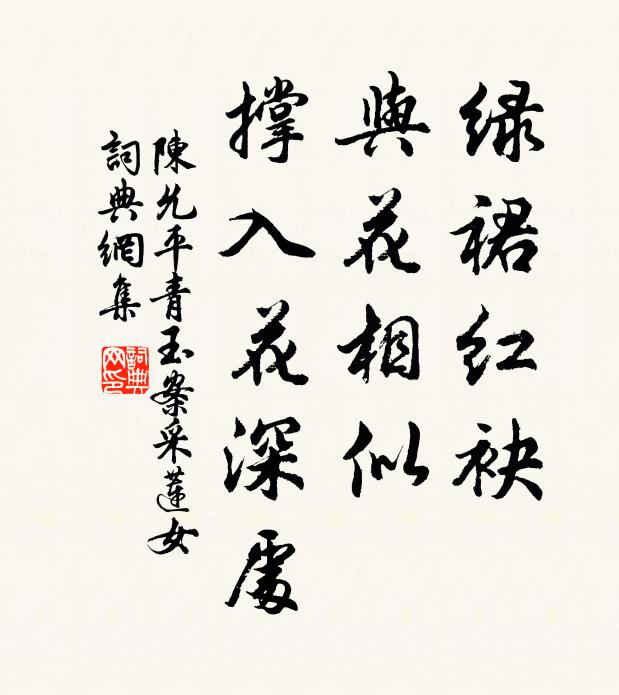 绿裙红袂
與花相似
撑入花深處
陳允平青玉案采蓮女
詞典網集
詞典网印